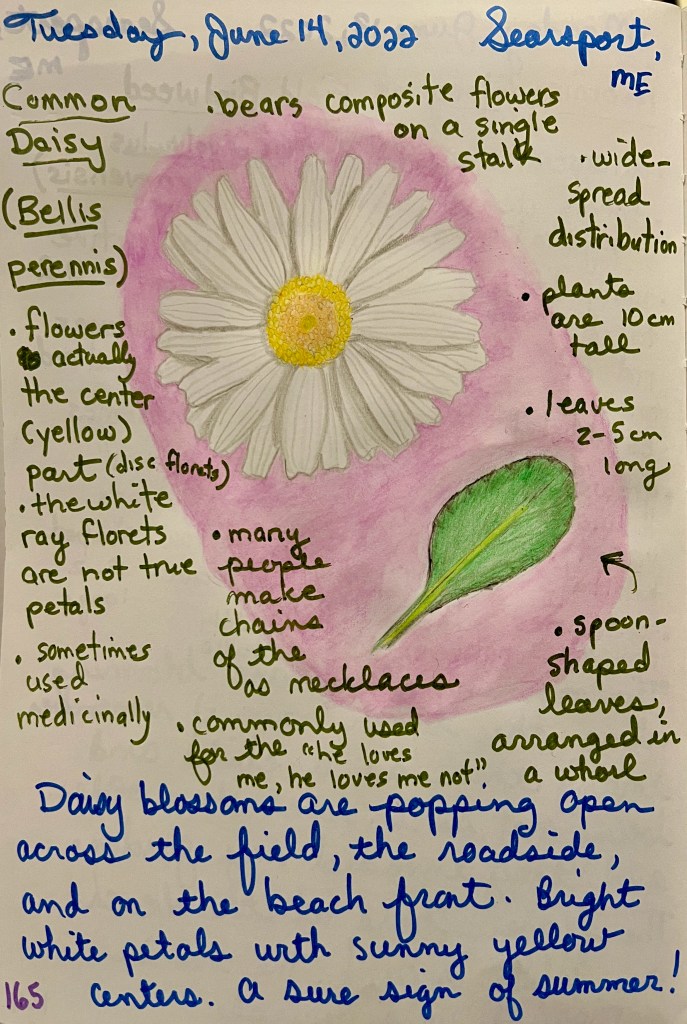 Tuesday, June 14, 2022 Searsport,
ME
Common
Daisy
(Bellis
perennis)
• flowers
actually
the center
(yellow)
part (disc florets)
• the white
ray florets
are not true
petals
• sometimes
used
medicinally
• bears composite flowers
on a single
stalk
• wide-
spread
distribution
• plants
are 10 cm
tall
• leaves
2-5 cm
long
• spoon-
shaped
leaves,
arranged in
a whorl
• many
people
make
chains
of the
as necklaces
• commonly used
for the "he loves
me, he loves me not"
Daisy blossoms are popping open
across the field, the roadside,
and on the beach front. Bright
white petals with sunny yellow
centers. A sure sign of summer!
165